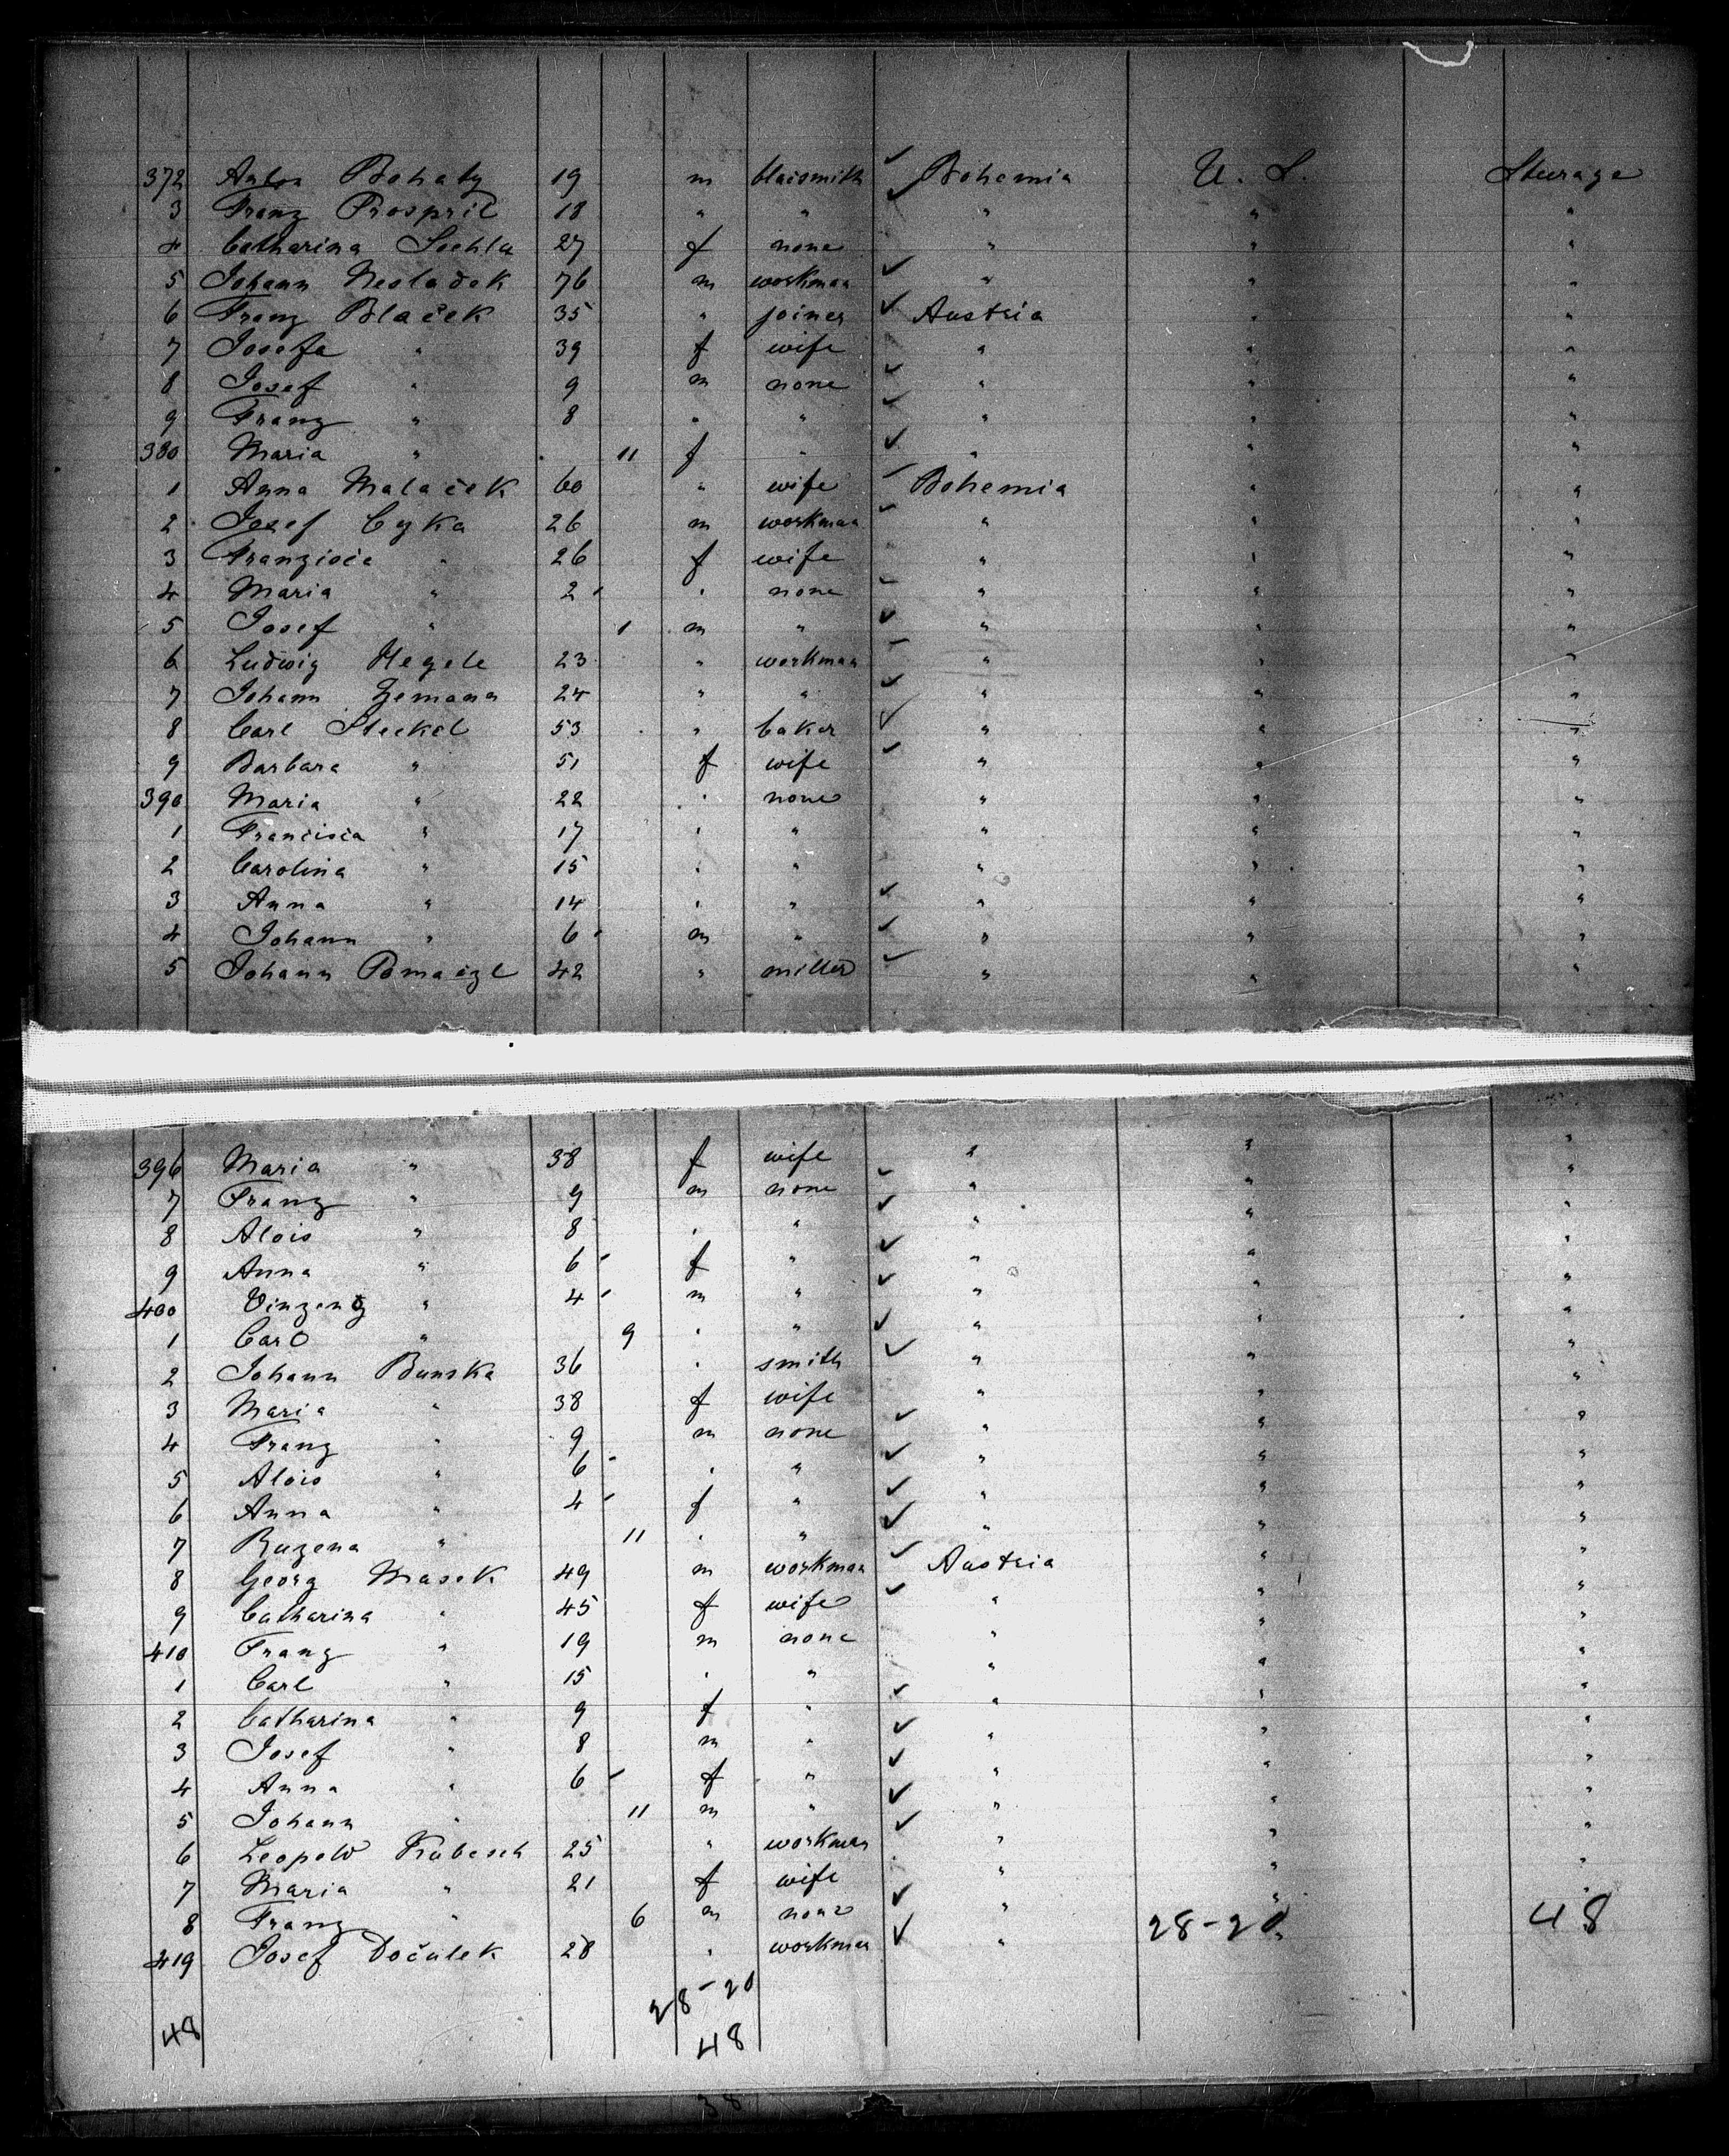 372 Anton Bohaty 19 m blacsmith ✓ Bohemia U. S. Steerage
3 Franz Pospril 18 " " ✓ " " "
4 Catharina Sochla 27 f none " " "
5 Johann Neoladek 76 m workman ✓ " " "
6 Franz Blaček 35 " joiner ✓ Austria " "
7 Josefa " 39 f wife " " "
8 Josef " 9 m none ✓ " " "
9 Franz " 8 " " ✓ " " "
380 Maria " 11 f " ✓ " " "
1 Anna Malaček 60 " wife ✓ Bohemia " "
2 Josef Cyka 26 m workman ✓ " " "
3 Franzisca " 26 f wife " " "
4 Maria " 2 " none ✓ " " "
5 Josef " 1 m " ✓ " " "
6 Ludwig Hegele 23 " workman ✓ " " "
7 Johann Zemann 24 " " ✓ " " "
8 Carl Steckel 53 " baker ✓ " " "
9 Barbara " 51 f wife ✓ " " "
390 Maria " 22 " none " " "
1 Francisca " 17 " " " " "
2 Carolina " 15 " " " " "
3 Anna " 14 " " ✓ " " "
4 Johann " 6 m " ✓ " " "
5 Johann Pomaizl 42 " miller ✓ " " "
396 Maria " 38 f wife " " "
7 Franz " 9 m none ✓ " " "
8 Alois " 8 " " ✓ " " "
9 Anna " 6 f " ✓ " " "
400 Vinzenz " 4 m " ✓ " " "
1 Carl " 9 " " ✓ " " "
2 Johann Bunska 36 " smith ✓ " " "
3 Maria " 38 f wife " " "
4 Franz " 9 m none ✓ " " "
5 Alois " 6 " " ✓ " " "
6 Anna " 4 f " ✓ " " "
7 Ruzena " 11 " " ✓ " " "
8 Georg Masek 49 m workman ✓ Austria " "
9 Catharina " 45 f wife ✓ " " "
410 Franz " 19 m none " " "
1 Carl " 15 " " " " "
2 Catharina " 9 f " ✓ " " "
3 Josef " 8 m " ✓ " " "
4 Anna " 6 f " ✓ " " "
5 Johann " 11 m " ✓ " " "
6 Leopold Kubesch 25 " workman ✓ " " "
7 Maria " 21 f wife " " "
8 Franz " 6 m none ✓ " " "
419 Josef Dočulek 28 " workman ✓ " 28-20 48
28-20
48 48
38